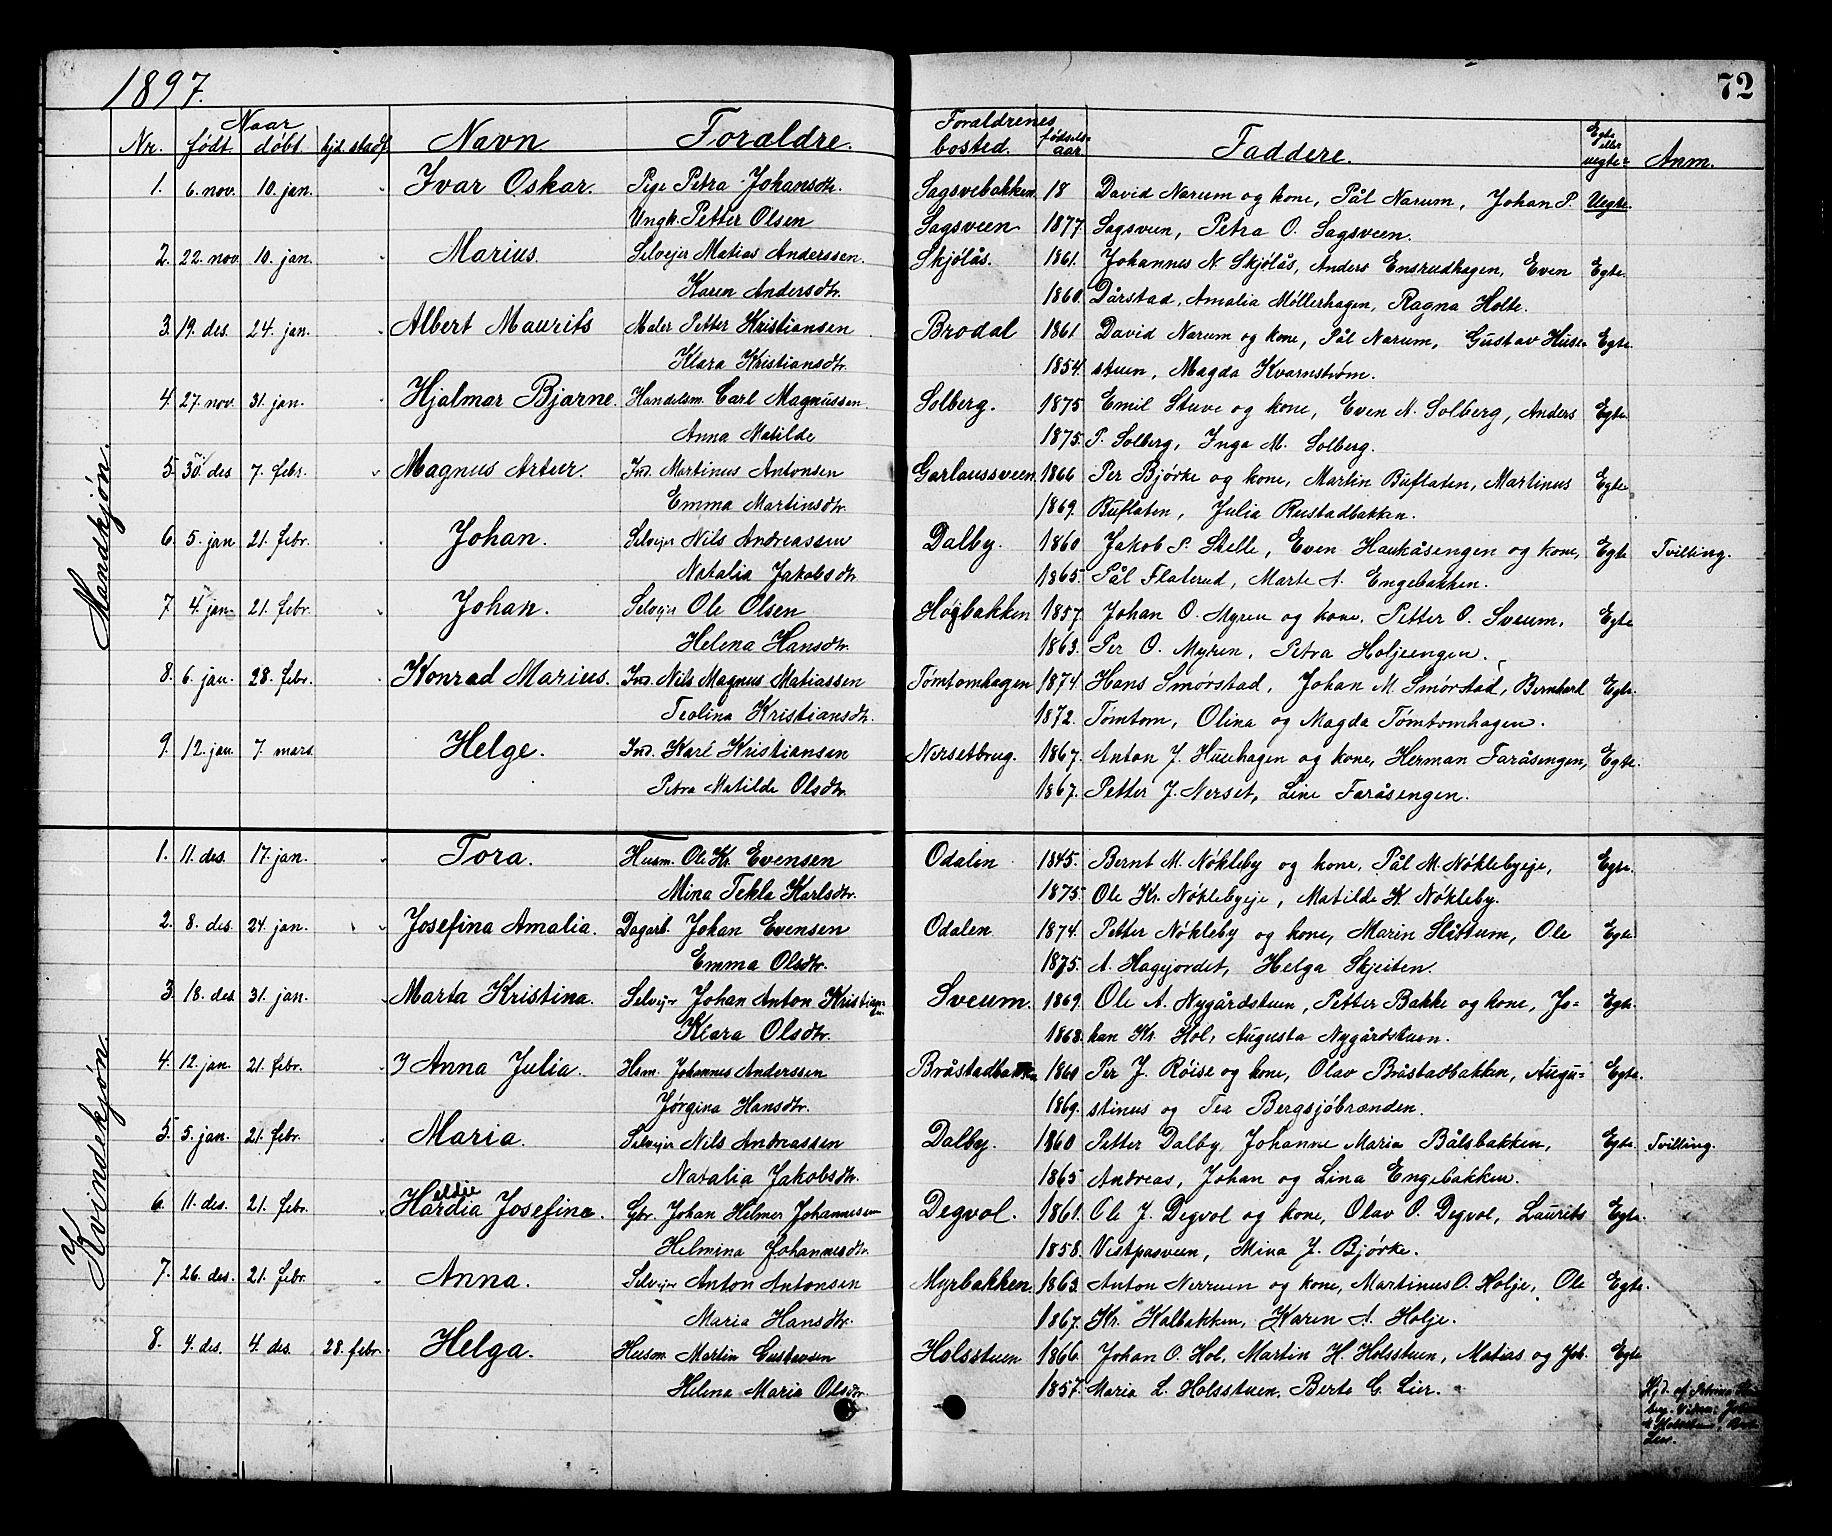 1897.
72
Nr. Naar født. døbt. hjd. stadf. Navn Forældre. Forældrenes bosted. fødsels-aar. Faddere. Egte eller uegte= Anm.
Mandkjøn.
1. 6. nov. 10. jan. Ivar Oskar. Pige Petra Johansdtr. Sagsvebakken 18 David Narum og kone, Pål Narum, Johan P. Uegte.
Ungk. Petter Olsen Sagsveen 1877. Sagsveen, Petra O. Sagsveen.
2. 22. nov. 10. jan. Marius. Selveier Matias Anderssen. Skjølås. 1861. Johannes N. Skjølås, Anders Ensrudhagen, Even Egte.
Karen Andersdtr. 1860. Dårstad, Amalia Møllerhagen, Ragna Holte.
3. 19. des. 24. jan. Albert Maurits Maler Petter Kristiansen Brodal 1861 David Narum og kone, Pål Narum, Gustav Huse= Egte.
Klara Kristiansdtr. 1854. stuen, Magda Kvarnstrøm.
4. 27. nov. 31. jan. Hjalmar Bjarne. Handelsm. Carl Magnussen Solberg. 1875 Emil Stuve og kone, Even N. Solberg, Anders Egte.
Anna Matilde 1875. P. Solberg, Inga M. Solberg.
5. 30. des. 7. febr. Magnus Artur. Ind. Martinus Antonsen Garlaussveen 1866 Per Bjørke og kone, Martin Buflaten, Martinus Egte.
Emma Martinsdtr. 1869. Buflaten, Julia Rustadbakken.
6. 5. jan. 21. febr. Johan. Selveier Nils Andreassen Dalby. 1860 Jakob P. Stelle, Even Haukåsengen og kone, Egte Tvilling.
Natalia Jakobsdtr. 1865. Pål Flaterud, Marte A. Engebakken.
7. 4. jan. 21. febr. Johan. Selveier Ole Olsen Høgbakken 1857. Johan O. Myren og kone, Petter O. Sveum, Egte
Helena Hansdtr. 1863. Per O. Myren, Petra Holjeengen.
8. 6. jan. 28. febr. Konrad Marius. Ind. Nils Magnus Matiassen Tømtomhagen 1874. Hans Smørstad, Johan M. Smørstad, Bernhard Egte.
Teolina Kristiansdtr. 1872. Tømtom, Olina og Magda Tømtomhagen.
9. 12. jan. 7. mars. Helge. Ind. Karl Kristiansen Nersetbrug. 1867. Anton J. Husehagen og kone, Herman Faråsengen, Egte.
Petra Matilde Olsdtr. 1867. Petter J. Nerset, Line Faråsengen.
Kvindekjøn.
1. 11. des. 17. jan. Tora. Husm. Ole Kr. Evensen Odalen 1845. Bernt M. Nøkleby og kone, Pål M. Nøklebyeje, Egte.
Mina Tekla Karlsdtr. 1875. Ole Kr. Nøklebyeje, Matilde K Nøkleby.
2. 8. des. 24. jan. Josefina Amalia. Dagarb. Johan Evensen Odalen 1874. Petter Nøkleby og kone, Marin Slåttum, Ole Egte
Emma Olsdtr. 1875. A. Hagejordet, Helga Skjeiten.
3. 18. des. 31. jan. Marta Kristina. Selveier Johan Anton Kristiansen. Sveum. 1869. Ole A. Nygårdstuen, Petter Bakke og kone, Jo= Egte.
Klara Olsdtr. 1868. han Kr. Hol, Augusta Nygårdstuen.
4. 12. jan. 21. febr. Anna Julia. Hsm. Johannes Anderssen Bråstadbakken 1860 Per J. Røise og kone, Olav Bråstadbakken, Augu= Egte.
Jørgina Hansdtr. 1869. stinus og Tea Bergsjøbrænden.
5. 5. jan. 21. febr. Maria. Selveier Nils Andreassen Dalby. 1860 Petter Dalby, Johanne Maria Bålsbakken, Egte. Tvilling.
Natalia Jakobsdtr. 1865 Andreas, Johan og Lina Engebakken.
6. 11. des. 21. febr. Josefine. Gbr. Johan Helmer Johannesen Degvol. 1861. Ole J. Degvol og kone, Olav O. Degvol, Laurits Egte.
Helmina Johannesdtr. 1858. Vestpasveen, Mina J. Bjørke.
7. 26. des. 21. febr. Anna. Selveier Anton Antonsen Myrbakken. 1863. Anton Nerruen og kone, Martinus O. Holje, Ole Egte.
Maria Hansdtr. 1867. Kr. Kalbakken, Karen A. Holje.
8. 4. des. 4. des. 28. febr. Helga. Husm Martin Gustavsen Holsstuen 1866. Johan O. Hol, Martin H. Holsstuen, Matias og Joh. Egte
Helena Maria Olsdtr. 1857. Maria L. Holsstuen, Berte C. Lier.
Hjd. af
Lier.